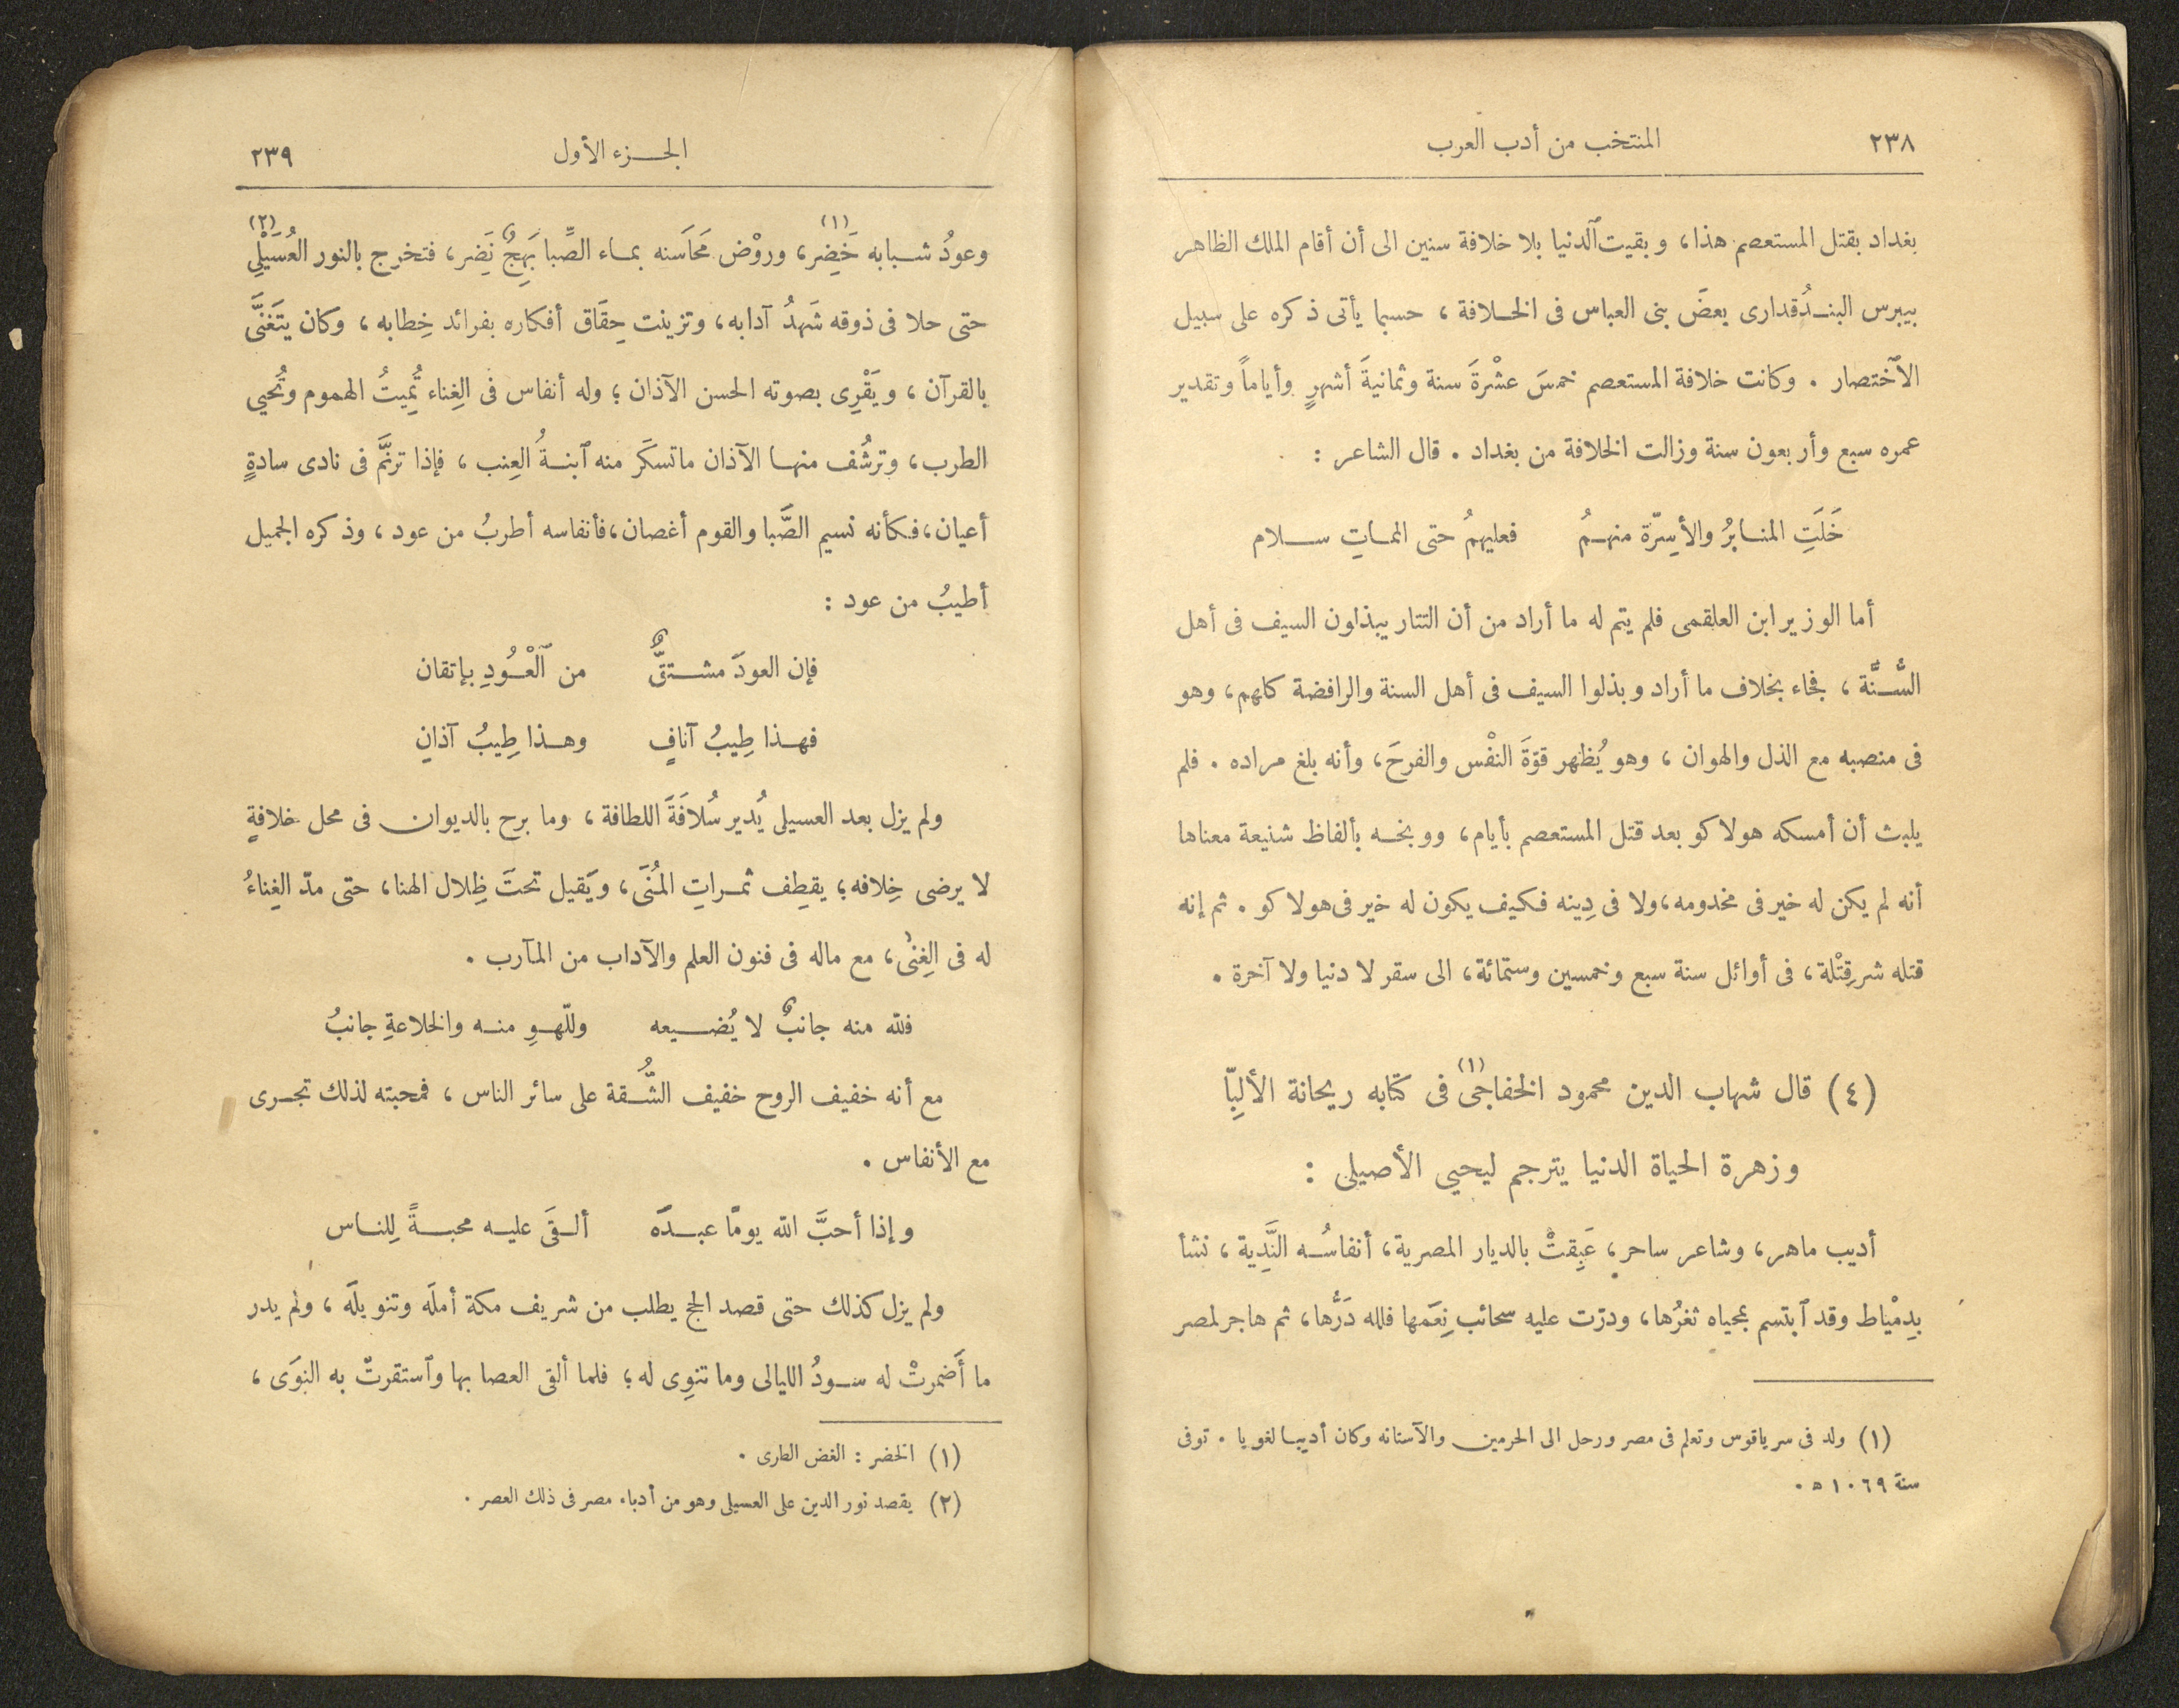 ٢٣٨
المنتخب من أدب العرب
بغداد بقتل المستعصم هذا، وبقيت ٱلدنيا بلا خلافة سنين الى أن أقام الملك الظاهر
بيبرس البندُقدارى بعضَ بنى العباس فى الخلافة، حسبما يأتى ذكره على سبيل
الٱختصار . وكانت خلافة المستعصم خمسَ عشْرةَ سنة وثمانيةَ أشهرٍ وأياماً وتقدير
عمره سبع وأربعون سنة وزالت الخلافة من بغداد . قال الشاعر :
خَلَتِ المنابرُ والأسِرّة منهمُ فعليهمُ حتى المماتِ سلام
أما الوزير ابن العلقمى فلم يتم له ما أراد من أن التتار يبذلون السيف فى أهل
السُّنَّة، فجاء بخلاف ما أراد وبذلوا السيف فى أهل السنة والرافضة كلهم، وهو
فى منصبه مع الذل والهوان، وهو يُظهر قوّةَ النفْس والفرحَ، وأنه بلغ مراده . فلم
يلبث أن أمسكه هولاكو بعد قتل المستعصم بأيام، ووبخه بألفاظ شنيعة معناها
أنه لم يكن له خير فى مخدومه، ولا فى دِينه فكيف يكون له خير فى هولاكو . ثم إنه
قتله شر قِتْلة، فى أوائل سنة سبع وخمسين وستمائة، الى سقر لا دنيا ولا آخرة .
(٤) قال شهاب الدين محمود الخفاجى (١) فى كتابه ريحانة الألِبّا
وزهرة الحياة الدنيا يترجم ليحيى الأصيلى :
أديب ماهر، وشاعر ساحر، عَبِقتْ بالديار المصرية، أنفاسُه النَّدِية، نشأ
بدِمْياط وقد ٱبتسم بمحياه ثغرُها، ودرّت عليه سحائب نِعَمها فلله دَرُّها، ثم هاجر لمصر
(١) ولد فى سرياقوس وتعلم فى مصر ورحل الى الحرمين والآستانه وكان أديبا لغويا . توفى
سنة ١٠٦٩ ه .
الجزء الأول
٢٣٩
وعودُ شبابه خَضِر (١)، وروْض مَحَاسنه بماء الصِّبا بَهِجٌ نَضِر، فتخرج بالنور العُسَيْلِى (٢)
حتى حلا فى ذوقه شَهدُ آدابه، وتزينت حِقَاق أفكاره بفرائد خِطابه، وكان يتَغنَّى
بالقرآن، ويَقْرِى بصوته الحسن الآذان؛ وله أنفاس فى الغِناء تُمِيتُ الهموم وتُحيي
الطرب، وترشُف منها الآذان ما تسكَر منه ٱبنةُ العِنب، فإذا ترنَّم فى نادى سادةٍ
أعيان، فكأنه نسيم الصَّبا والقوم أغصان، فأنفاسه أطربُ من عود، وذكره الجميل
أطيبُ من عود :
فإن العودَ مشتقٌّ من ٱلْعُودِ بإتقان
فهذا طِيبُ آنافٍ وهذا طِيبُ آذانِ
ولم يزل بعد العسيلى يُدير سُلافَةَ اللطافة، وما برح بالديوان فى محل خلافةٍ
لا يرضى خِلافه؛ يقطِف ثمراتِ المُنَى، ويَقيل تحتَ ظِلال الهنا، حتى مدّ الغِناءُ
له فى الغِنى، مع ماله فى فنون العلم والآداب من المآرب .
فلله منه جانبٌ لا يُضيعه وللّهوِ منه والخلاعةِ جانبُ
مع أنه خفيف الروح خفيف الشُّقة على سائر الناس، فمحبته لذلك تجرى
مع الأنفاس .
وإذا أحبَّ الله يومًا عبدَه ألقَى عليه محبةً لِلناس
ولم يزل كذلك حتى قصد الحج يطلب من شريف مكة أملَه وتنويلَه، ولم يدر
ما أَضمرتْ له سودُ الليالى وما تنوِى له؛ فلما ألقى العصا بها وٱستقرتّ به النوَى،
(١) الخضر : الغض الطرى .
(٢) يقصد نور الدين على العسيلى وهو من أدباء مصر فى ذلك العصر .